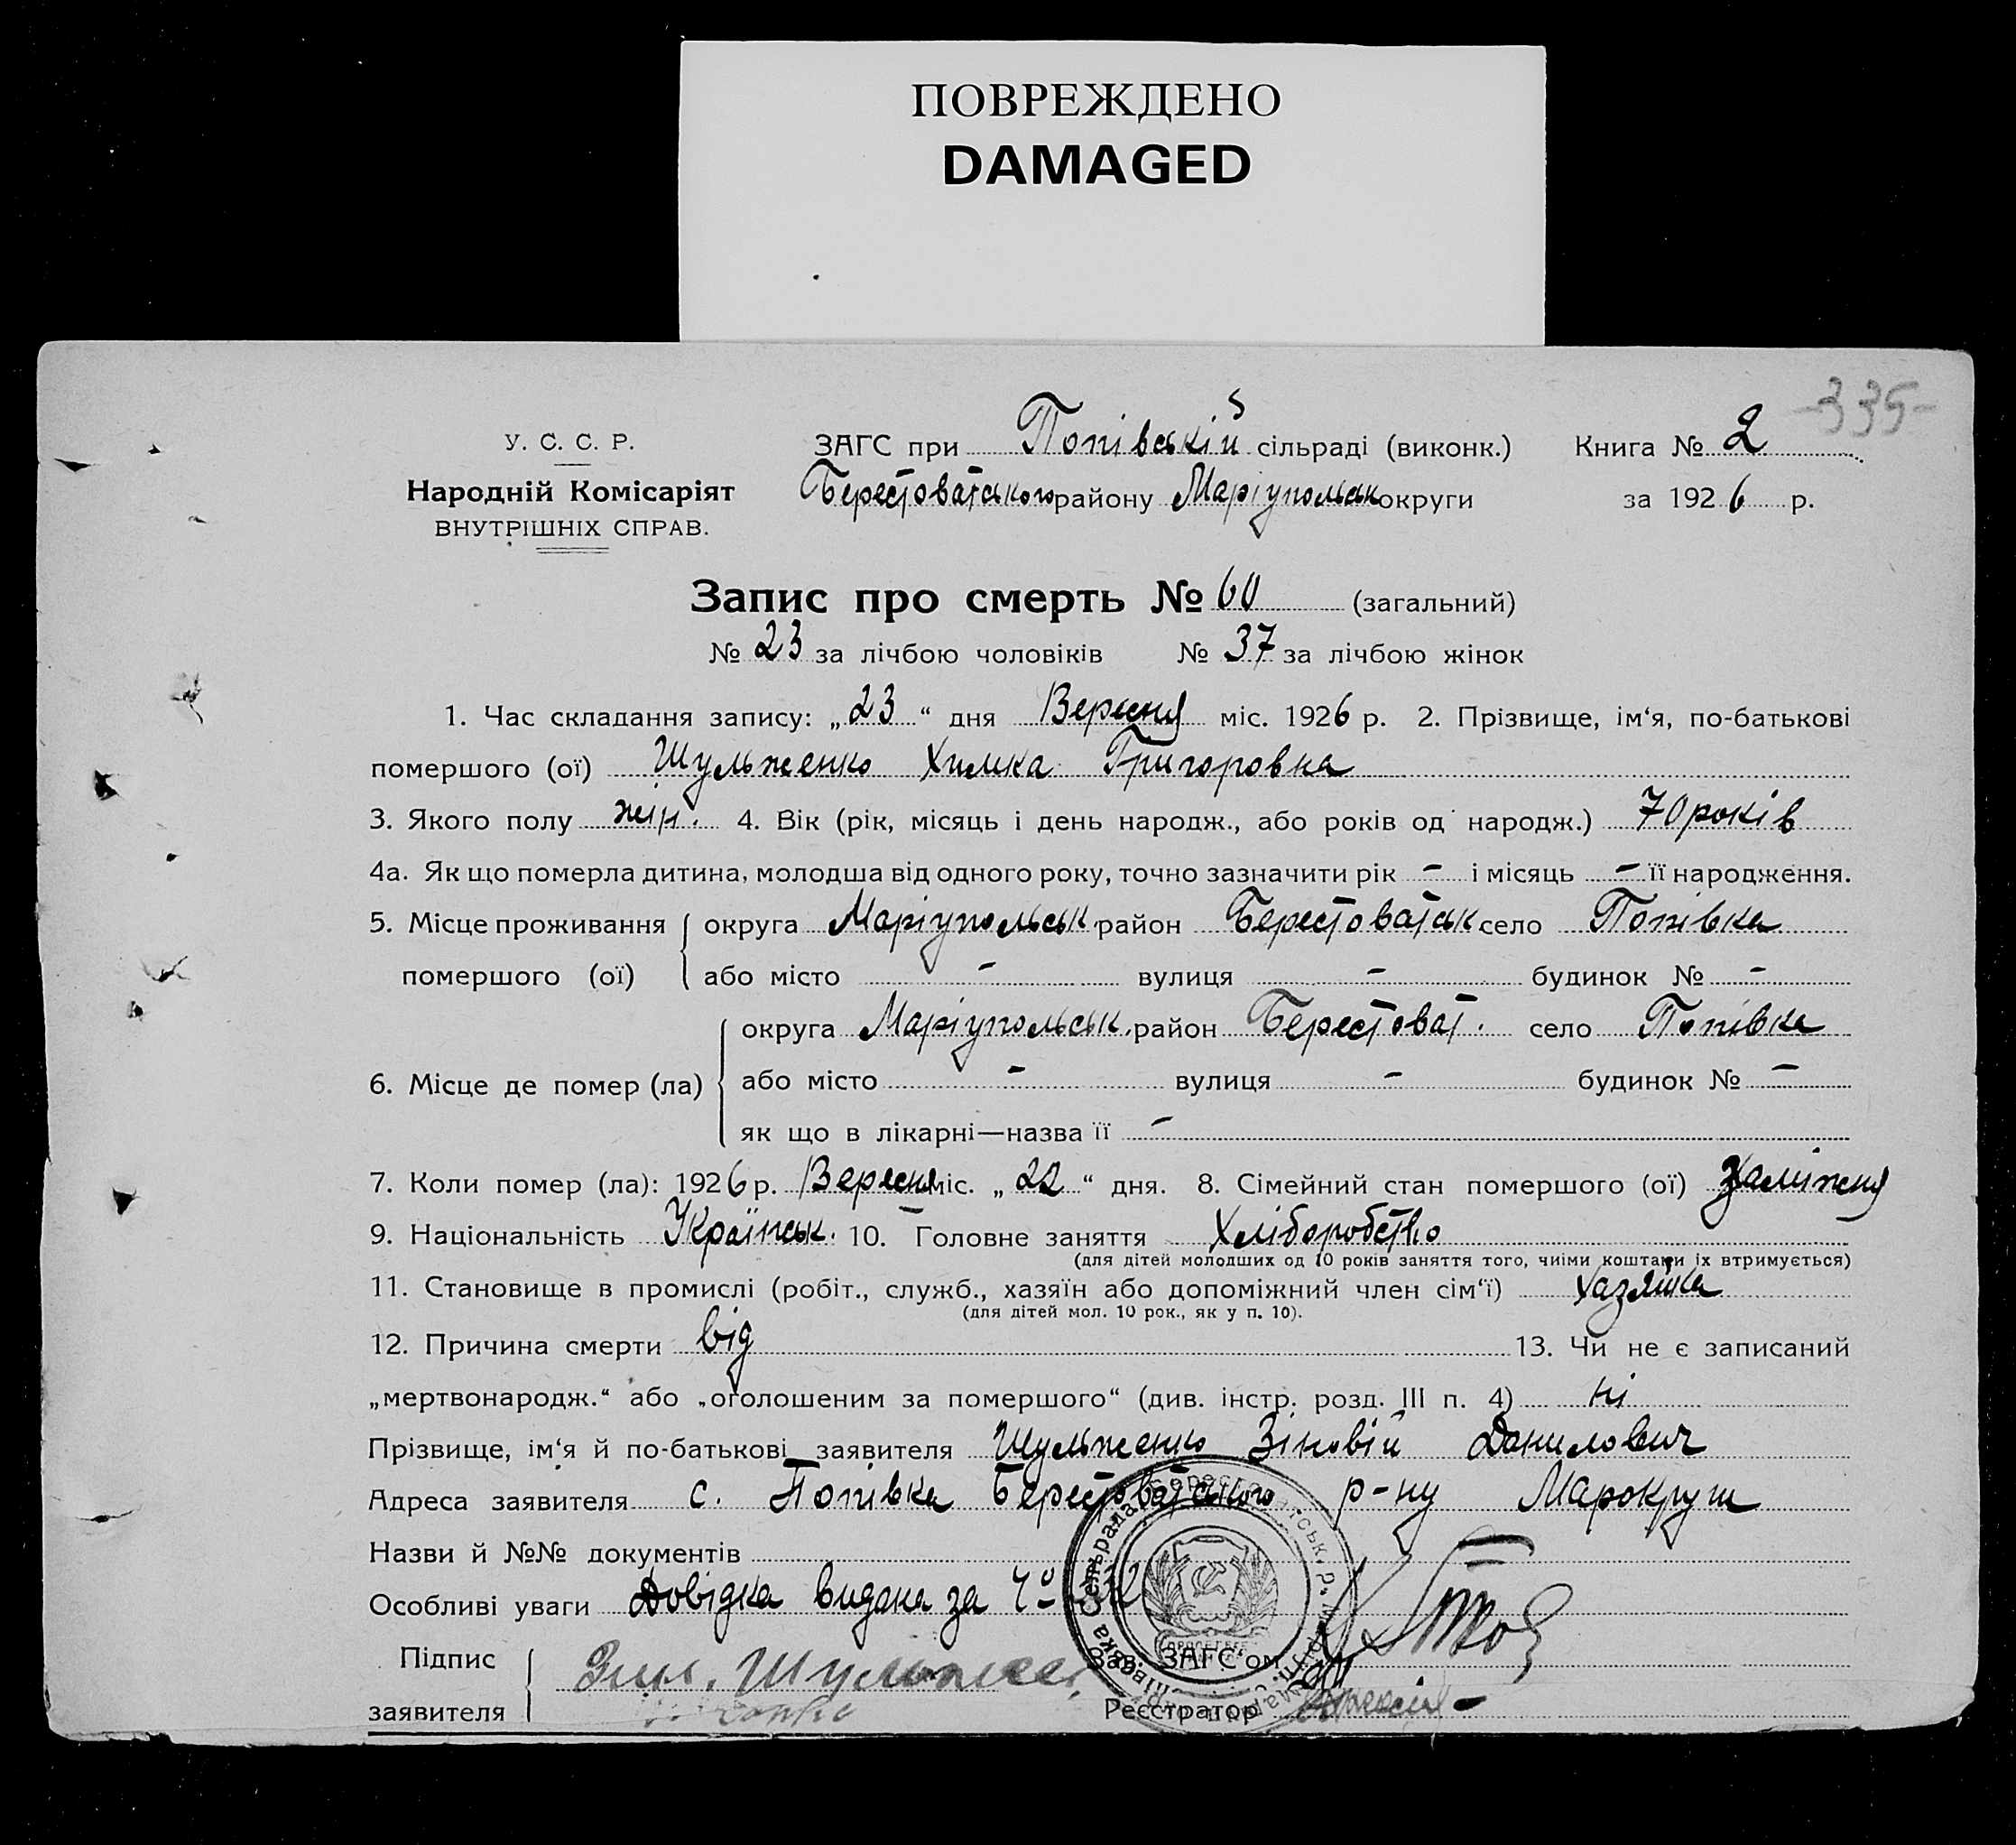 ПОВРЕЖДЕНО
DAMAGED
-335-
У. С. С. Р.
Народній Комісаріят
ВНУТРІШНІХ СПРАВ.
ЗАГС при Попівській сільраді (виконк.) Книга № 2
Берестоватського району Маріупольськ округи за 1926 р.
Запис про смерть № 60 (загальний)
№ 23 за лічбою чоловіків № 37 за лічбою жінок
1. Час складання запису: „23“ дня Вересня міс. 1926 р. 2. Прізвище, ім‘я, по-батькові
помершого (ої) Шульженко Химка Григоровна
3. Якого полу жін. 4. Вік (рік, місяць і день народж., або років од народж.) 70 років
4а. Як що померла дитина, молодша від одного року, точно зазначити рік – і місяць – її народження.
5. Місце проживання помершого (ої) округа Маріупольськ. район Берестоватськ село Попівка
або місто – вулиця – будинок № –
6. Місце де помер (ла) округа Маріупольськ. район Берестоват. село Попівка
або місто – вулиця – будинок № –
як що в лікарні—назва її –
7. Коли помер (ла): 1926 р. Вересня міс. „22“ дня. 8. Сімейний стан помершого (ої) Заміжня
9. Національність Українськ. 10. Головне заняття Хліборобство
(для дітей молодших од 10 років заняття того, чиїми коштами їх втримується)
11. Становище в промислі (робіт., служб., хазяїн або допоміжний член сім‘ї) хазяйка
(для дітей мол. 10 рок., як у п. 10).
12. Причина смерти від 13. Чи не є записаний
„мертвонародж.“ або „оголошеним за помершого“ (див. інстр. розд. III п. 4) ні
Прізвище, ім‘я й по-батькові заявителя Шульженко Зіновій Данилович
Адреса заявителя с. Попівка Берестоватського р-ну Марокруги
Назви й №№ документів
Особливі уваги Довідка видана за №
Підпис заявителя Зин. Шульжен
Зав. ЗАГС‘ом
Реєстратор